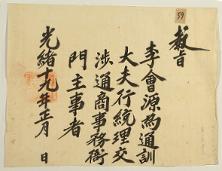 敎旨
李會源爲通訓
大夫行統理交
涉通商事務衙
門主事者
光緖十九年正月 日
59